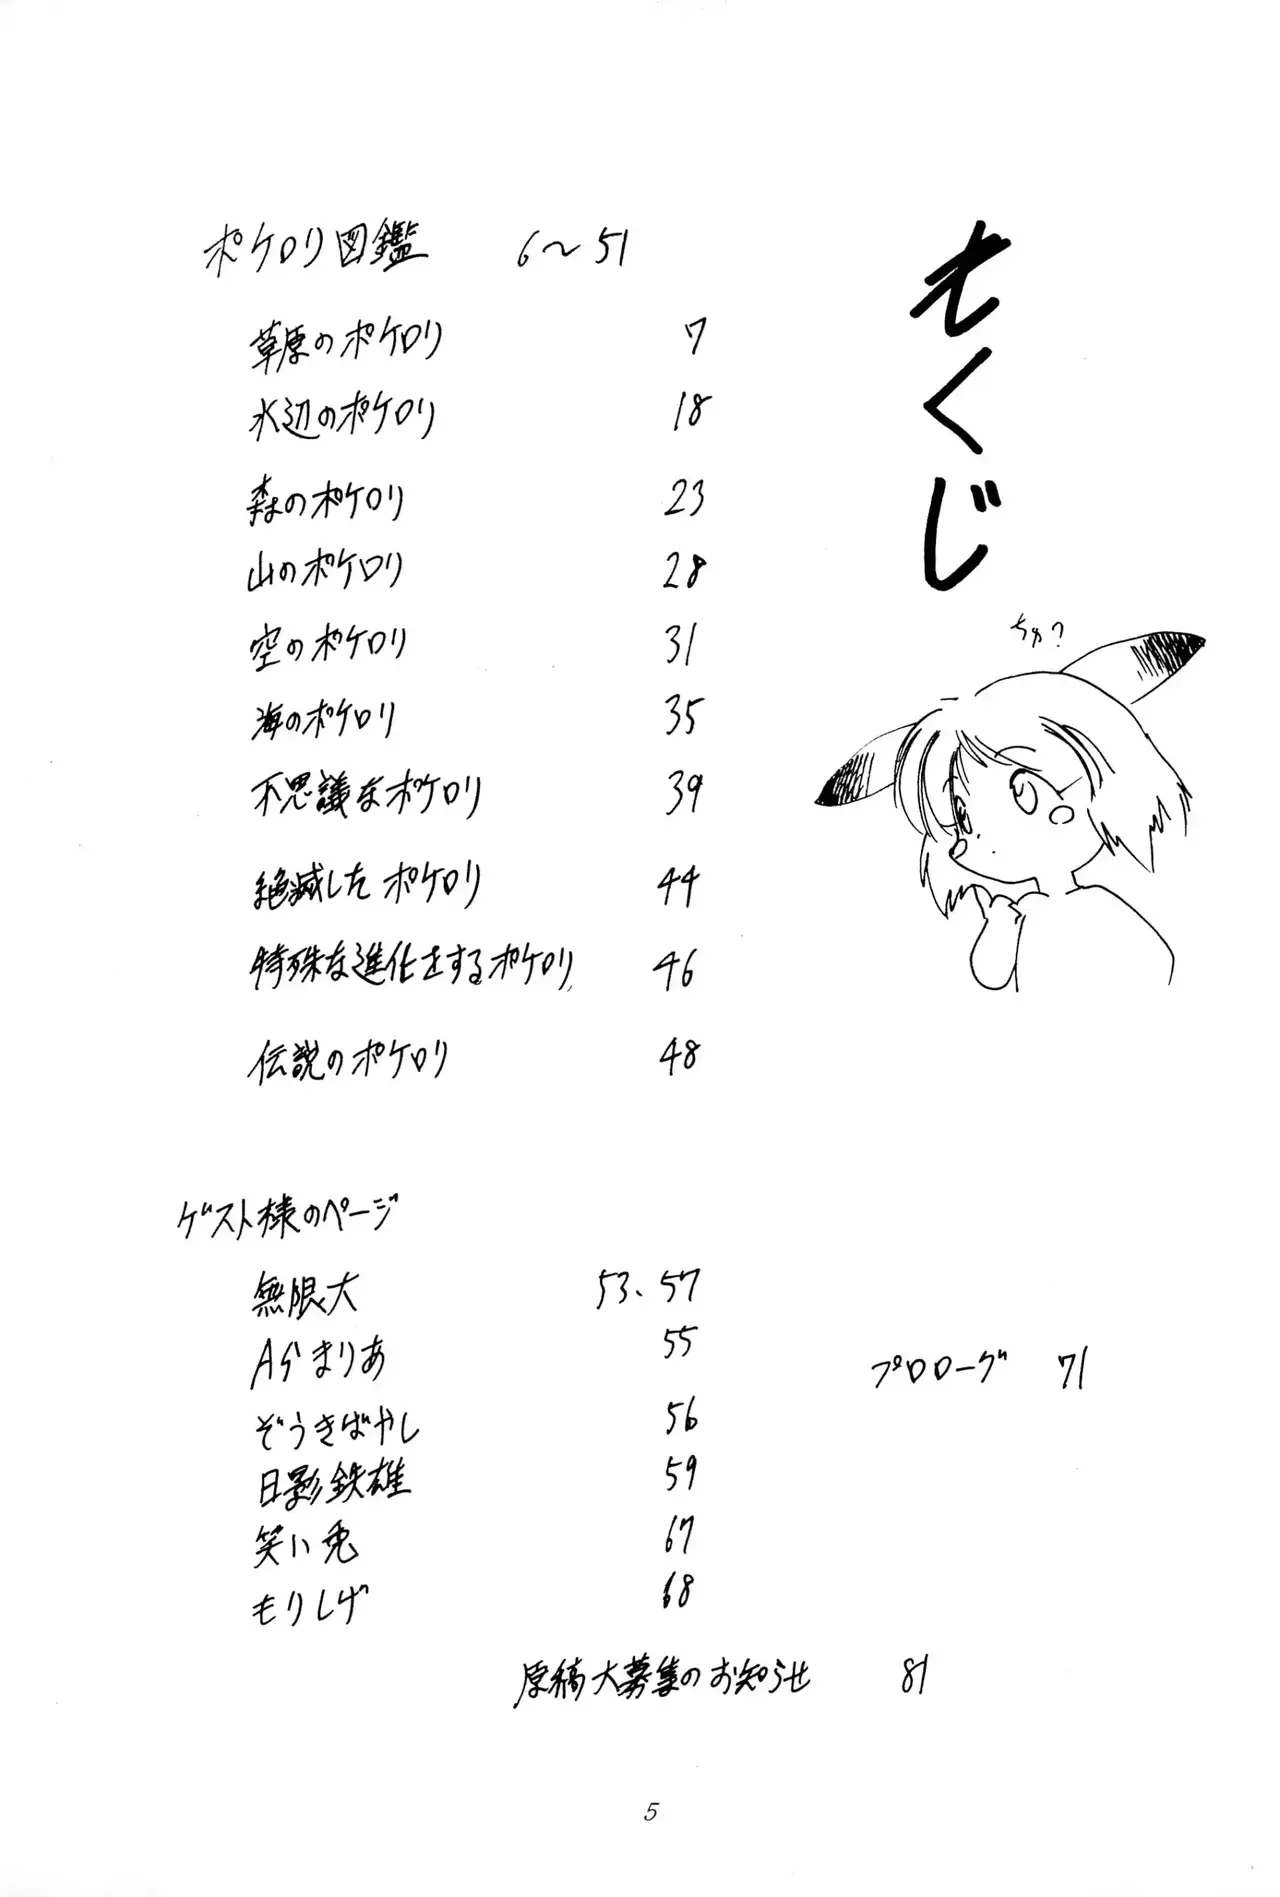 もくじ
ちゅ?
ポケロリ図鑑 6〜51
草原のポケロリ 7
水辺のポケロリ 18
森のポケロリ 23
山のポケロリ 28
空のポケロリ 31
海のポケロリ 35
不思議なポケロリ 39
絶滅したポケロリ 44
特殊な進化をするポケロリ 46
伝説のポケロリ 48
ゲスト様のページ
無限大 53、57
Aらまりあ 55
ぞうきばやし 56
日影鉄雄 59
笑い兎 67
もりしげ 68
プロローグ 71
原稿大募集のお知らせ 81
5